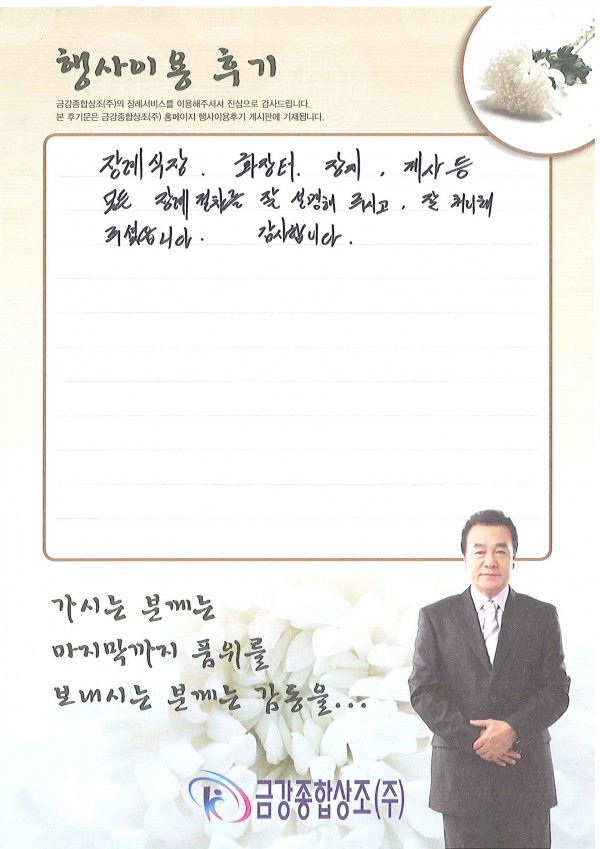 행사이용 후기
금강종합상조(주)의 장례서비스를 이용해주셔서 진심으로 감사드립니다.
본 후기문은 금강종합상조(주) 홈페이지 행사이용후기 게시판에 기재됩니다.
장례식장. 화장터. 장지, 제사 등
모든 장례 절차를 잘 설명해 주시고, 잘 처리해
주셨습니다. 감사합니다.
가시는 분께는
마지막까지 품위를
보내시는 분께는 감동을...
금강종합상조(주)